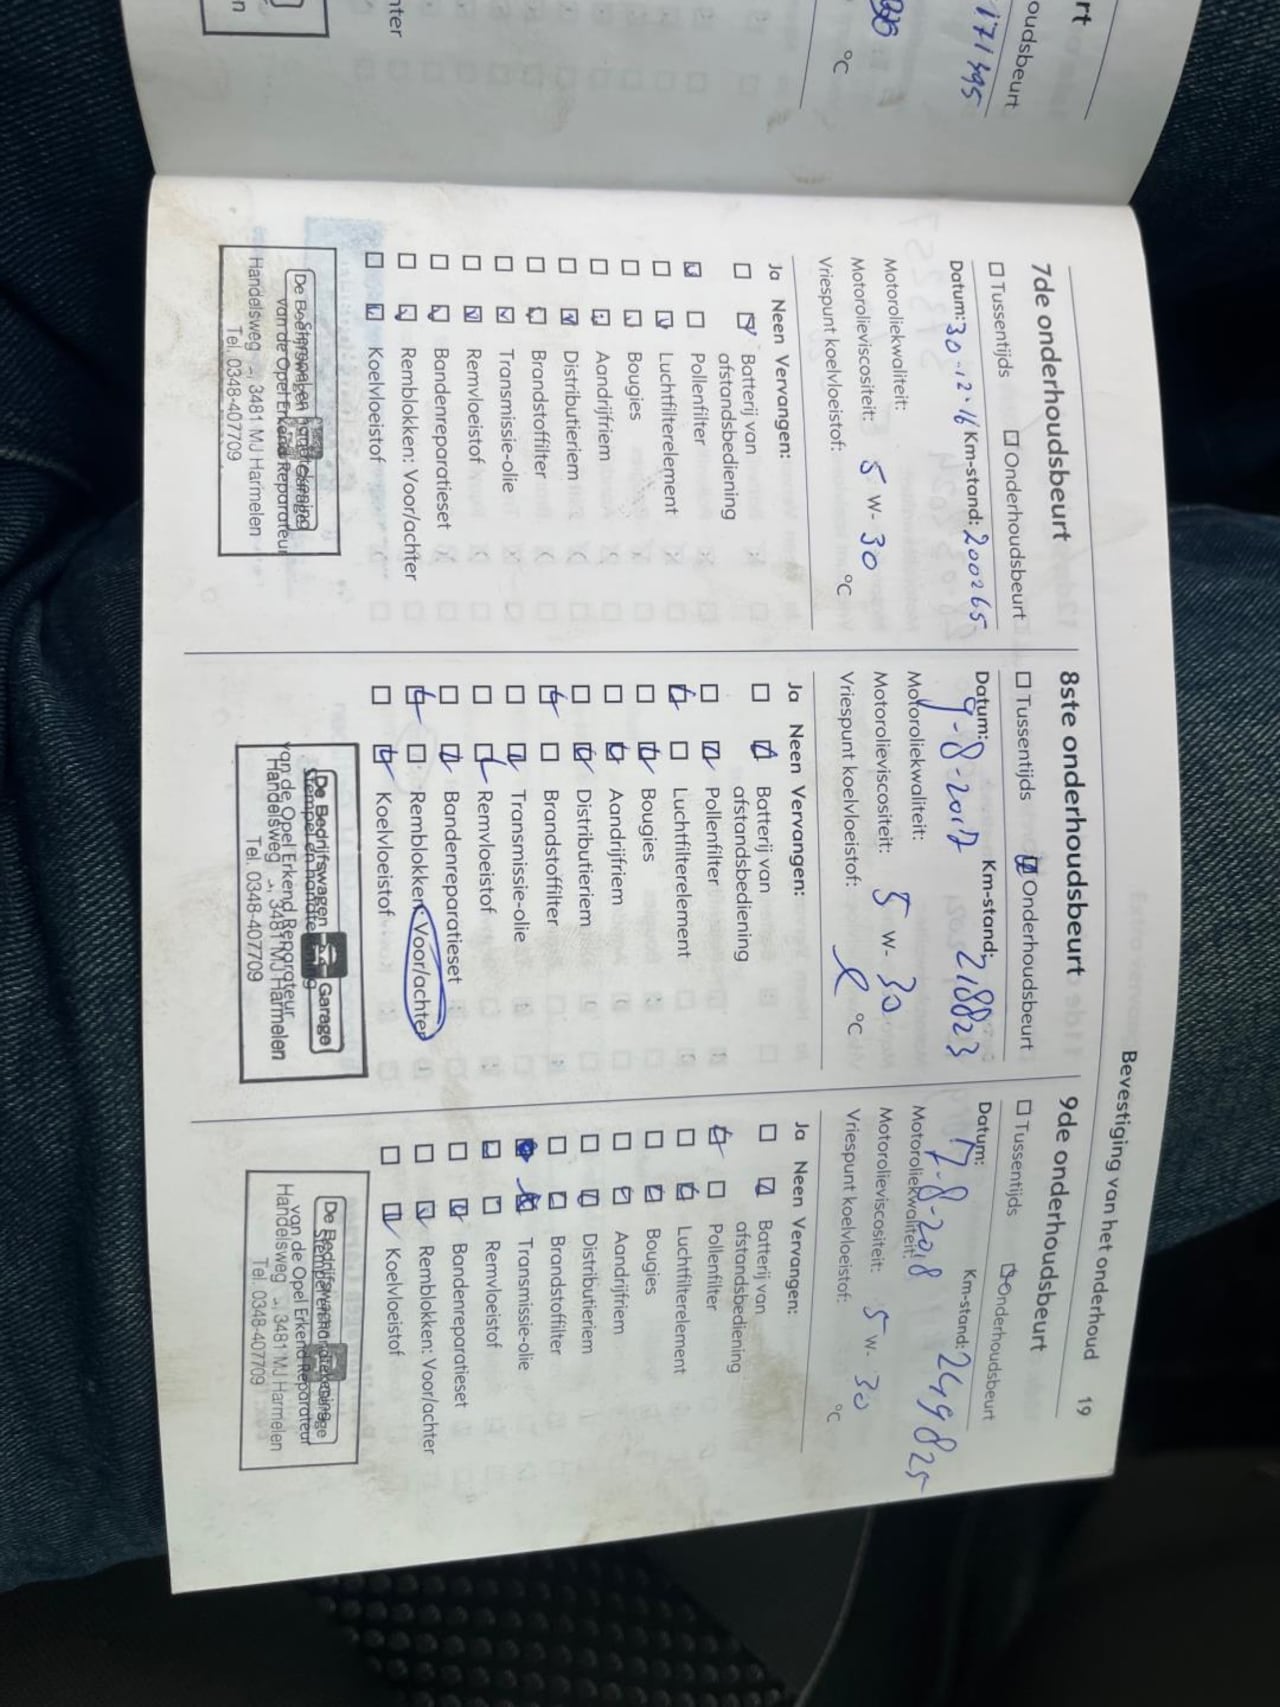 rt
oudsbeurt
171395
°C
nter
n
Bevestiging van het onderhoud 19
7de onderhoudsbeurt
Tussentijds Onderhoudsbeurt
Datum: 30-12-16 Km-stand: 200265
Motoroliekwaliteit:
Motorolieviscositeit: 5 W- 30
Vriespunt koelvloeistof: °C
Ja Neen Vervangen:
Batterij van
afstandsbediening
Pollenfilter
Luchtfilterelement
Bougies
Aandrijfriem
Distributieriem
Brandstoffilter
Transmissie-olie
Remvloeistof
Bandenreparatieset
Remblokken: Voor/achter
Koelvloeistof
van de Opel Erkend Reparateur
Handelsweg 3481 MJ Harmelen
Tel. 0348-407709
8ste onderhoudsbeurt
Tussentijds Onderhoudsbeurt
Datum: 9-8-2017 Km-stand: 218823
Motoroliekwaliteit:
Motorolieviscositeit: 5 W- 30
Vriespunt koelvloeistof: °C
Ja Neen Vervangen:
Batterij van
afstandsbediening
Pollenfilter
Luchtfilterelement
Bougies
Aandrijfriem
Distributieriem
Brandstoffilter
Transmissie-olie
Remvloeistof
Bandenreparatieset
Remblokken: Voor/achter
Koelvloeistof
De Bedrijfswagen Garage
Stempel en handtekening
van de Opel Erkend Reparateur
Handelsweg 3481 MJ Harmelen
Tel. 0348-407709
9de onderhoudsbeurt
Tussentijds Onderhoudsbeurt
Datum: 17-8-2018 Km-stand: 249825
Motoroliekwaliteit:
Motorolieviscositeit: 5 W- 30
Vriespunt koelvloeistof: °C
Ja Neen Vervangen:
Batterij van
afstandsbediening
Pollenfilter
Luchtfilterelement
Bougies
Aandrijfriem
Distributieriem
Brandstoffilter
Transmissie-olie
Remvloeistof
Bandenreparatieset
Remblokken: Voor/achter
Koelvloeistof
van de Opel Erkend Reparateur
Handelsweg 3481 MJ Harmelen
Tel. 0348-407709